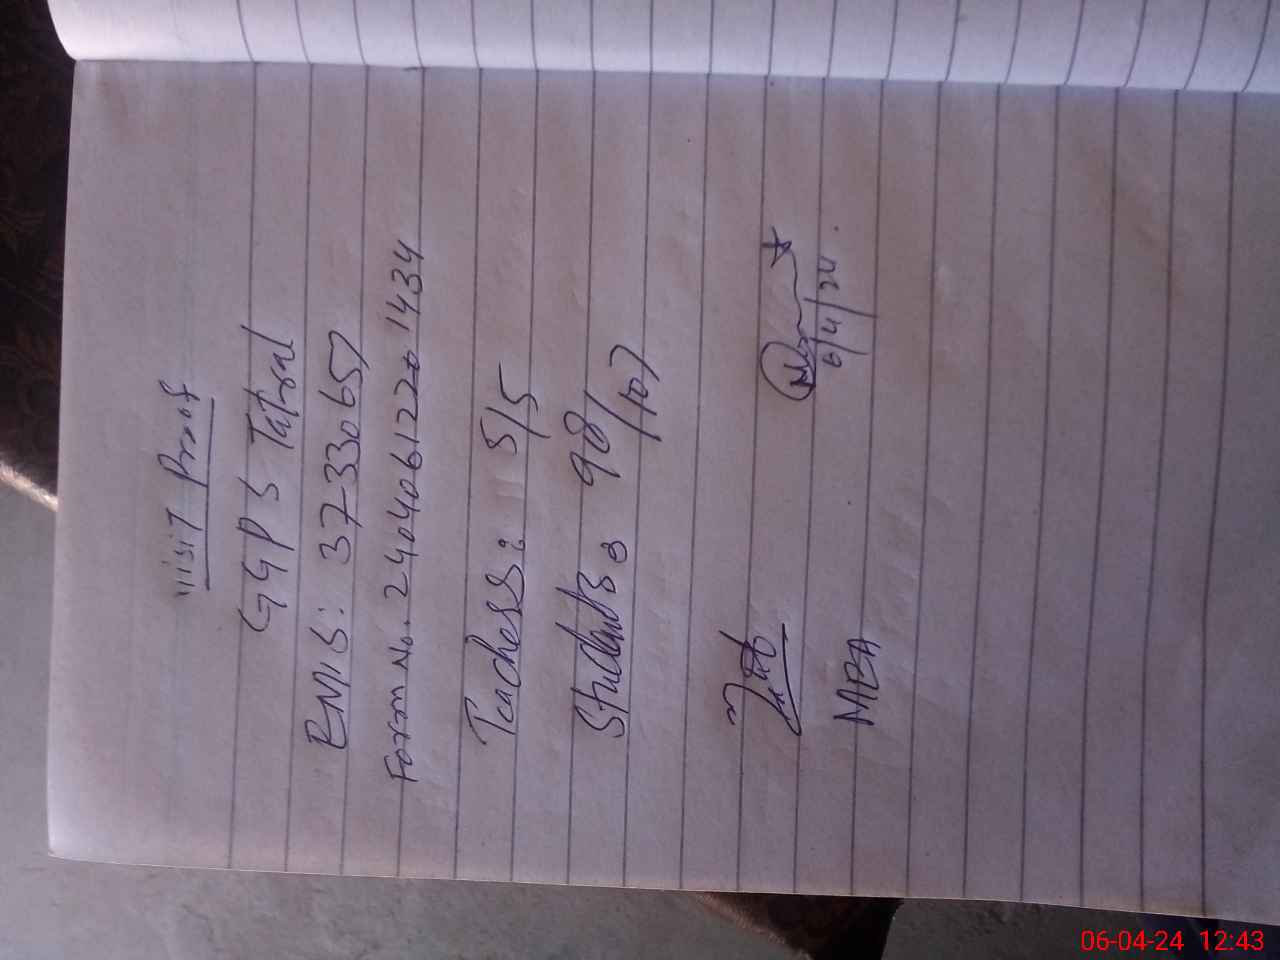 Visit Proof
GGPS Tatral
EMIS: 37330657
Form No. 2404061220 1434
Teachers: 5/5
Students: 98/107
6/4/24
MEA
06-04-24 12:43